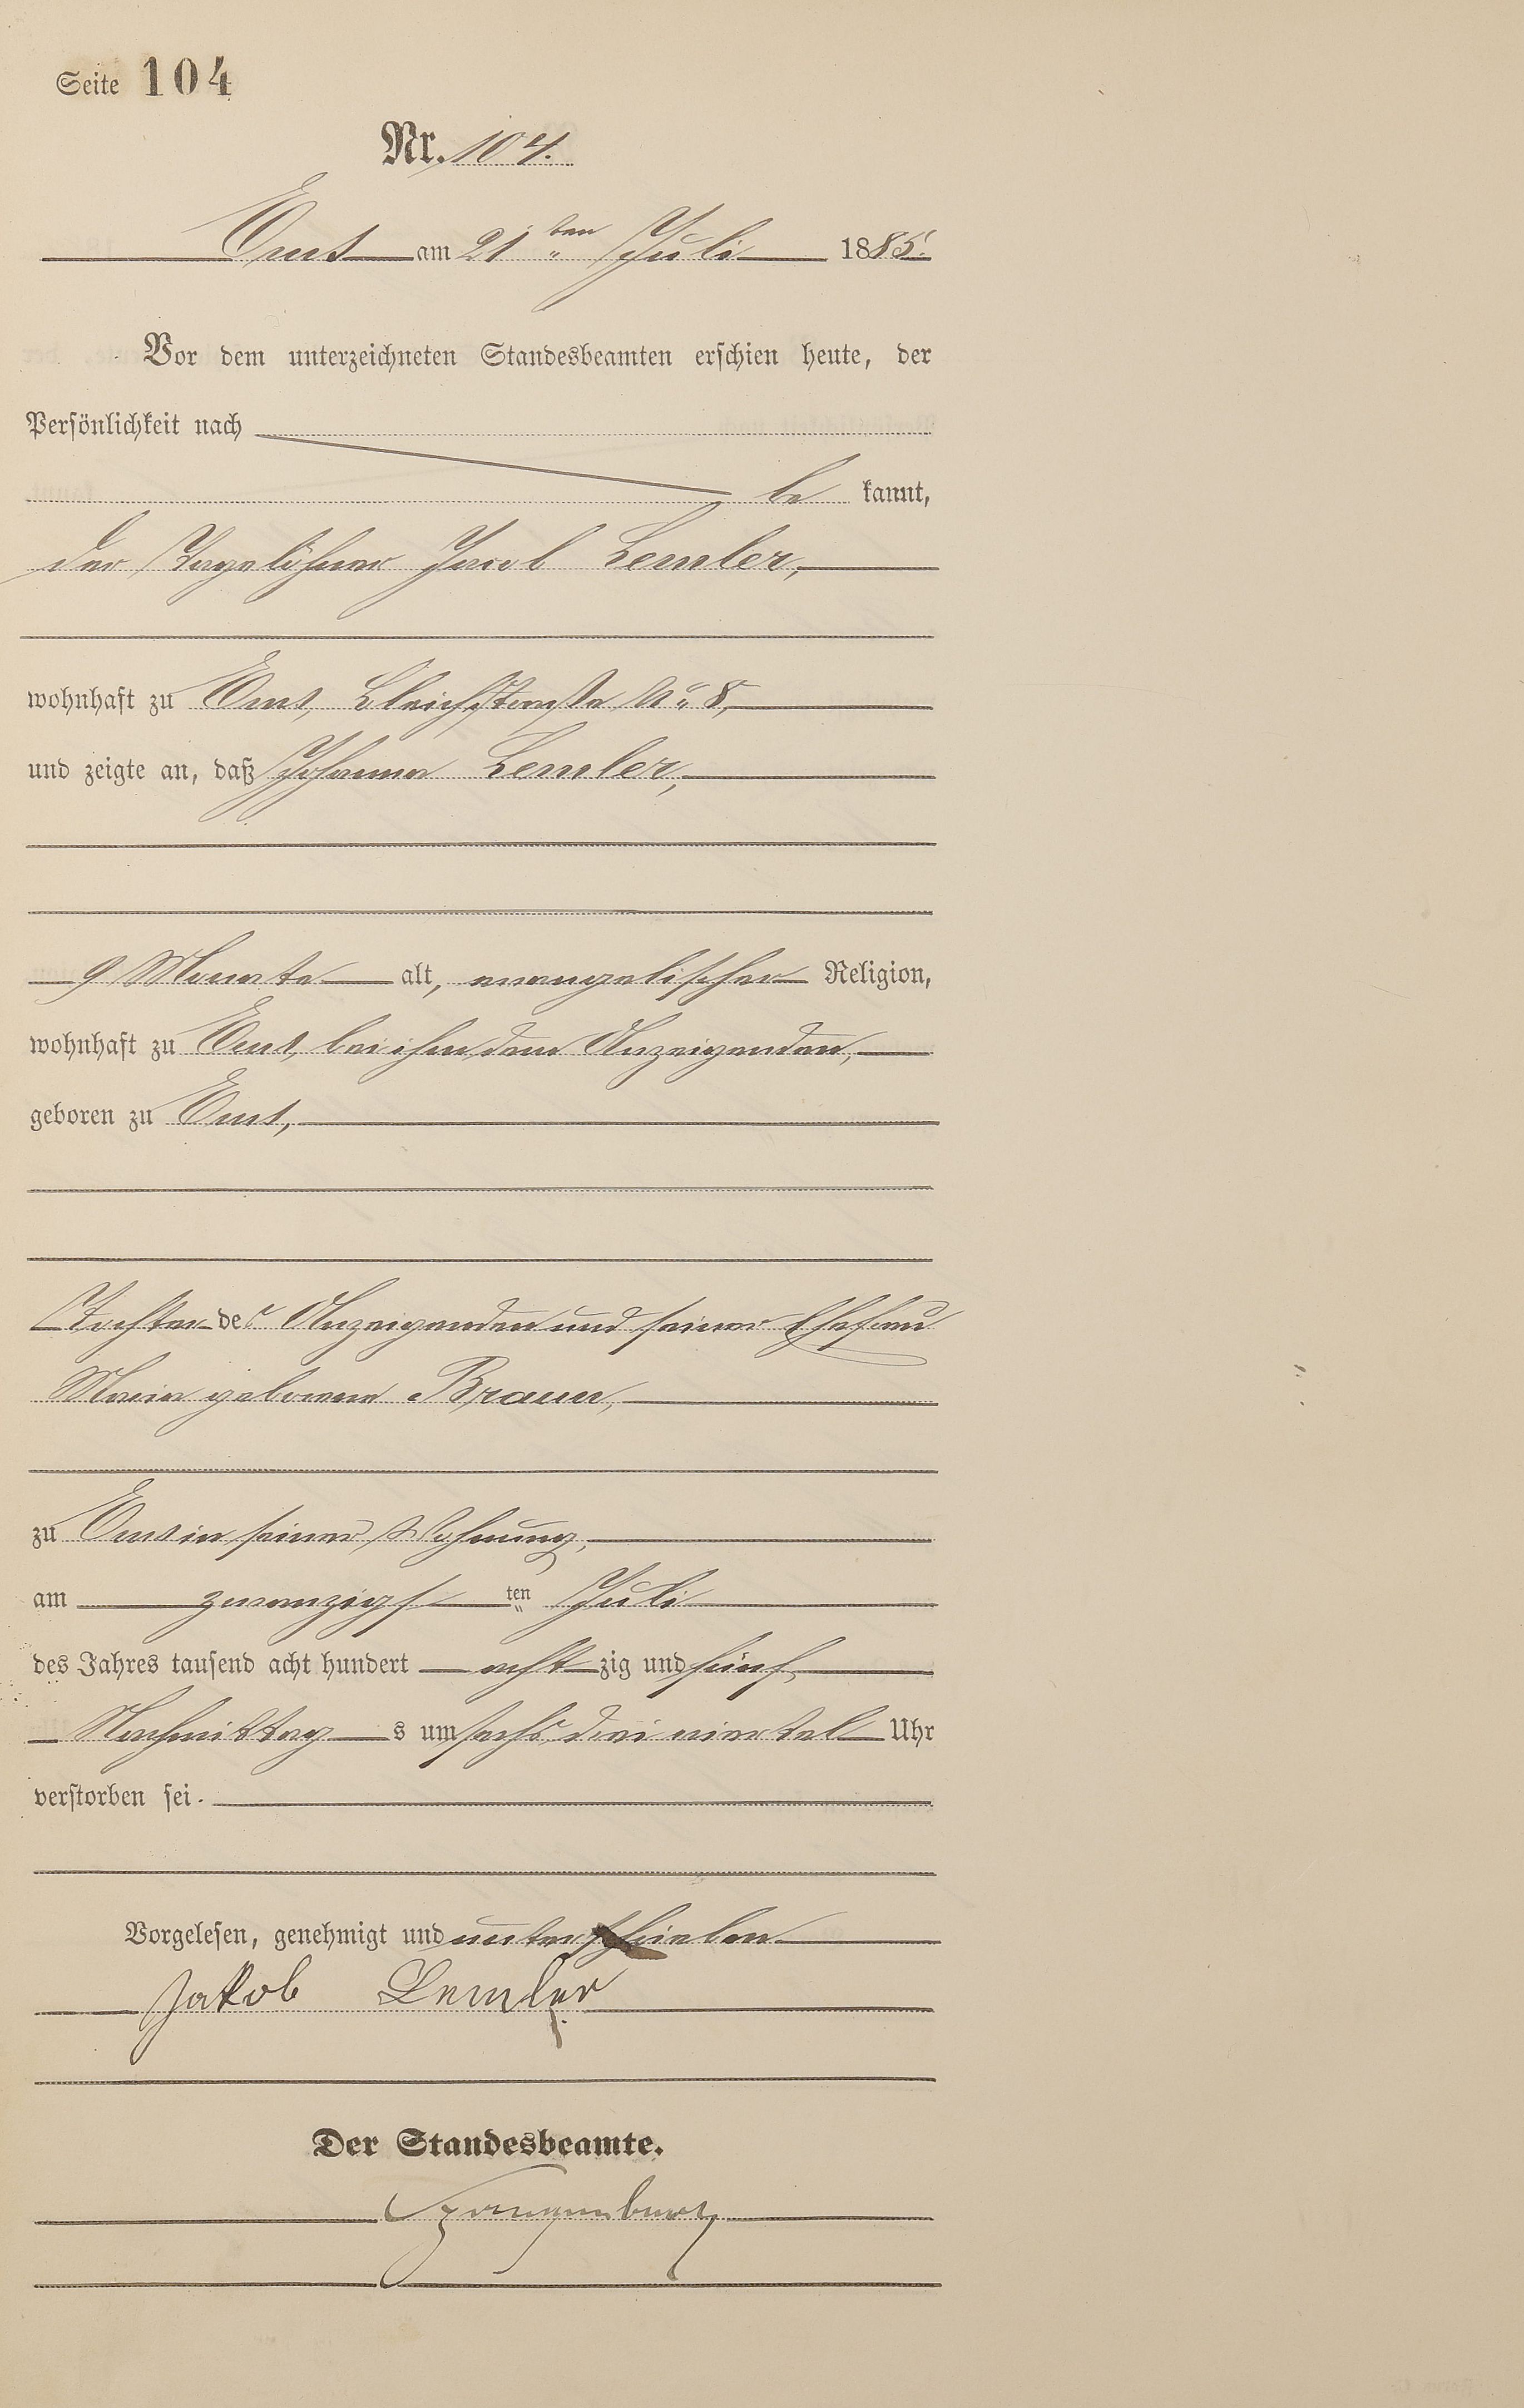 Seite 104
Nr. 104.
Ems am 21 ten Juli 1885.
Vor dem unterzeichneten Standesbeamten erschien heute, der
Persönlichkeit nach
be kannt,
der Tagelöhner Jacob Lemler,
wohnhaft zu Ems, Bleichstraße No 8,
und zeigte an, daß Johanna Lemler,
9 Monate alt, evangelischer Religion,
wohnhaft zu Ems, bei ihm, dem Anzeigenden,
geboren zu Ems,
Tochter des Anzeigenden und seiner Ehefrau
Maria geborene Braun,
zu Ems in seiner Wohnung,
am zwanzigs ten Juli
des Jahres tausend acht hundert acht zig und fünf,
Nachmittag s um sechs drei viertel Uhr
verstorben sei.
Vorgelesen, genehmigt und unterschrieben
Jakob Lemler
Der Standesbeamte.